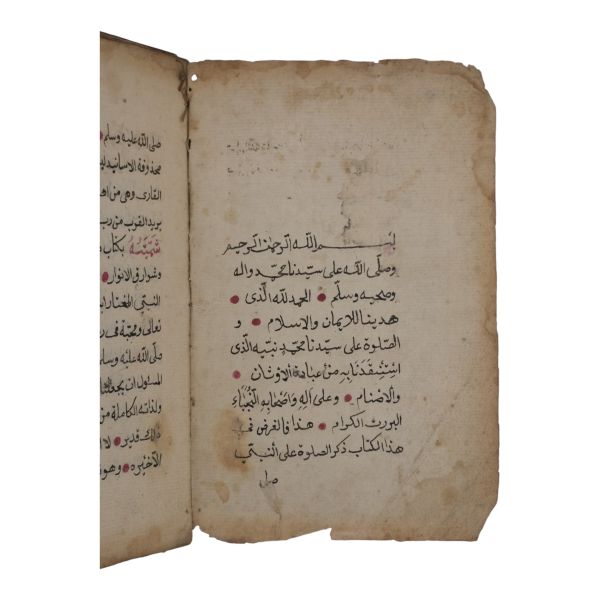 بسم الله الرحمن الرحيم
وصلى الله على سيّدنا محمّد واله
وصحبه وسلّم الحمد لله الّذى
هدينا للايمان والاسلام و
الصّلوة على سيّدنا محمّد نبيّه الّذى
استنقذنا به من عبادة الاوثان
والاصنام وعلى اله واصحابه النّجباء
البررت الكرام هذا فالغرض فى
هذا الكتاب ذكر الصلوة على النبىّ
صل
صلى الله عليه وسلم
محذوفة الاسانيد
القارى وهى من
يريد القرب من رب
سمّيته بكتاب
وشوارق الانوار
النبى المختار
تعالى ومحبّة فى
صلى الله عليه وسلم
المسئول ان
ولذاته الكاملة من
ذلك قدير
وهو